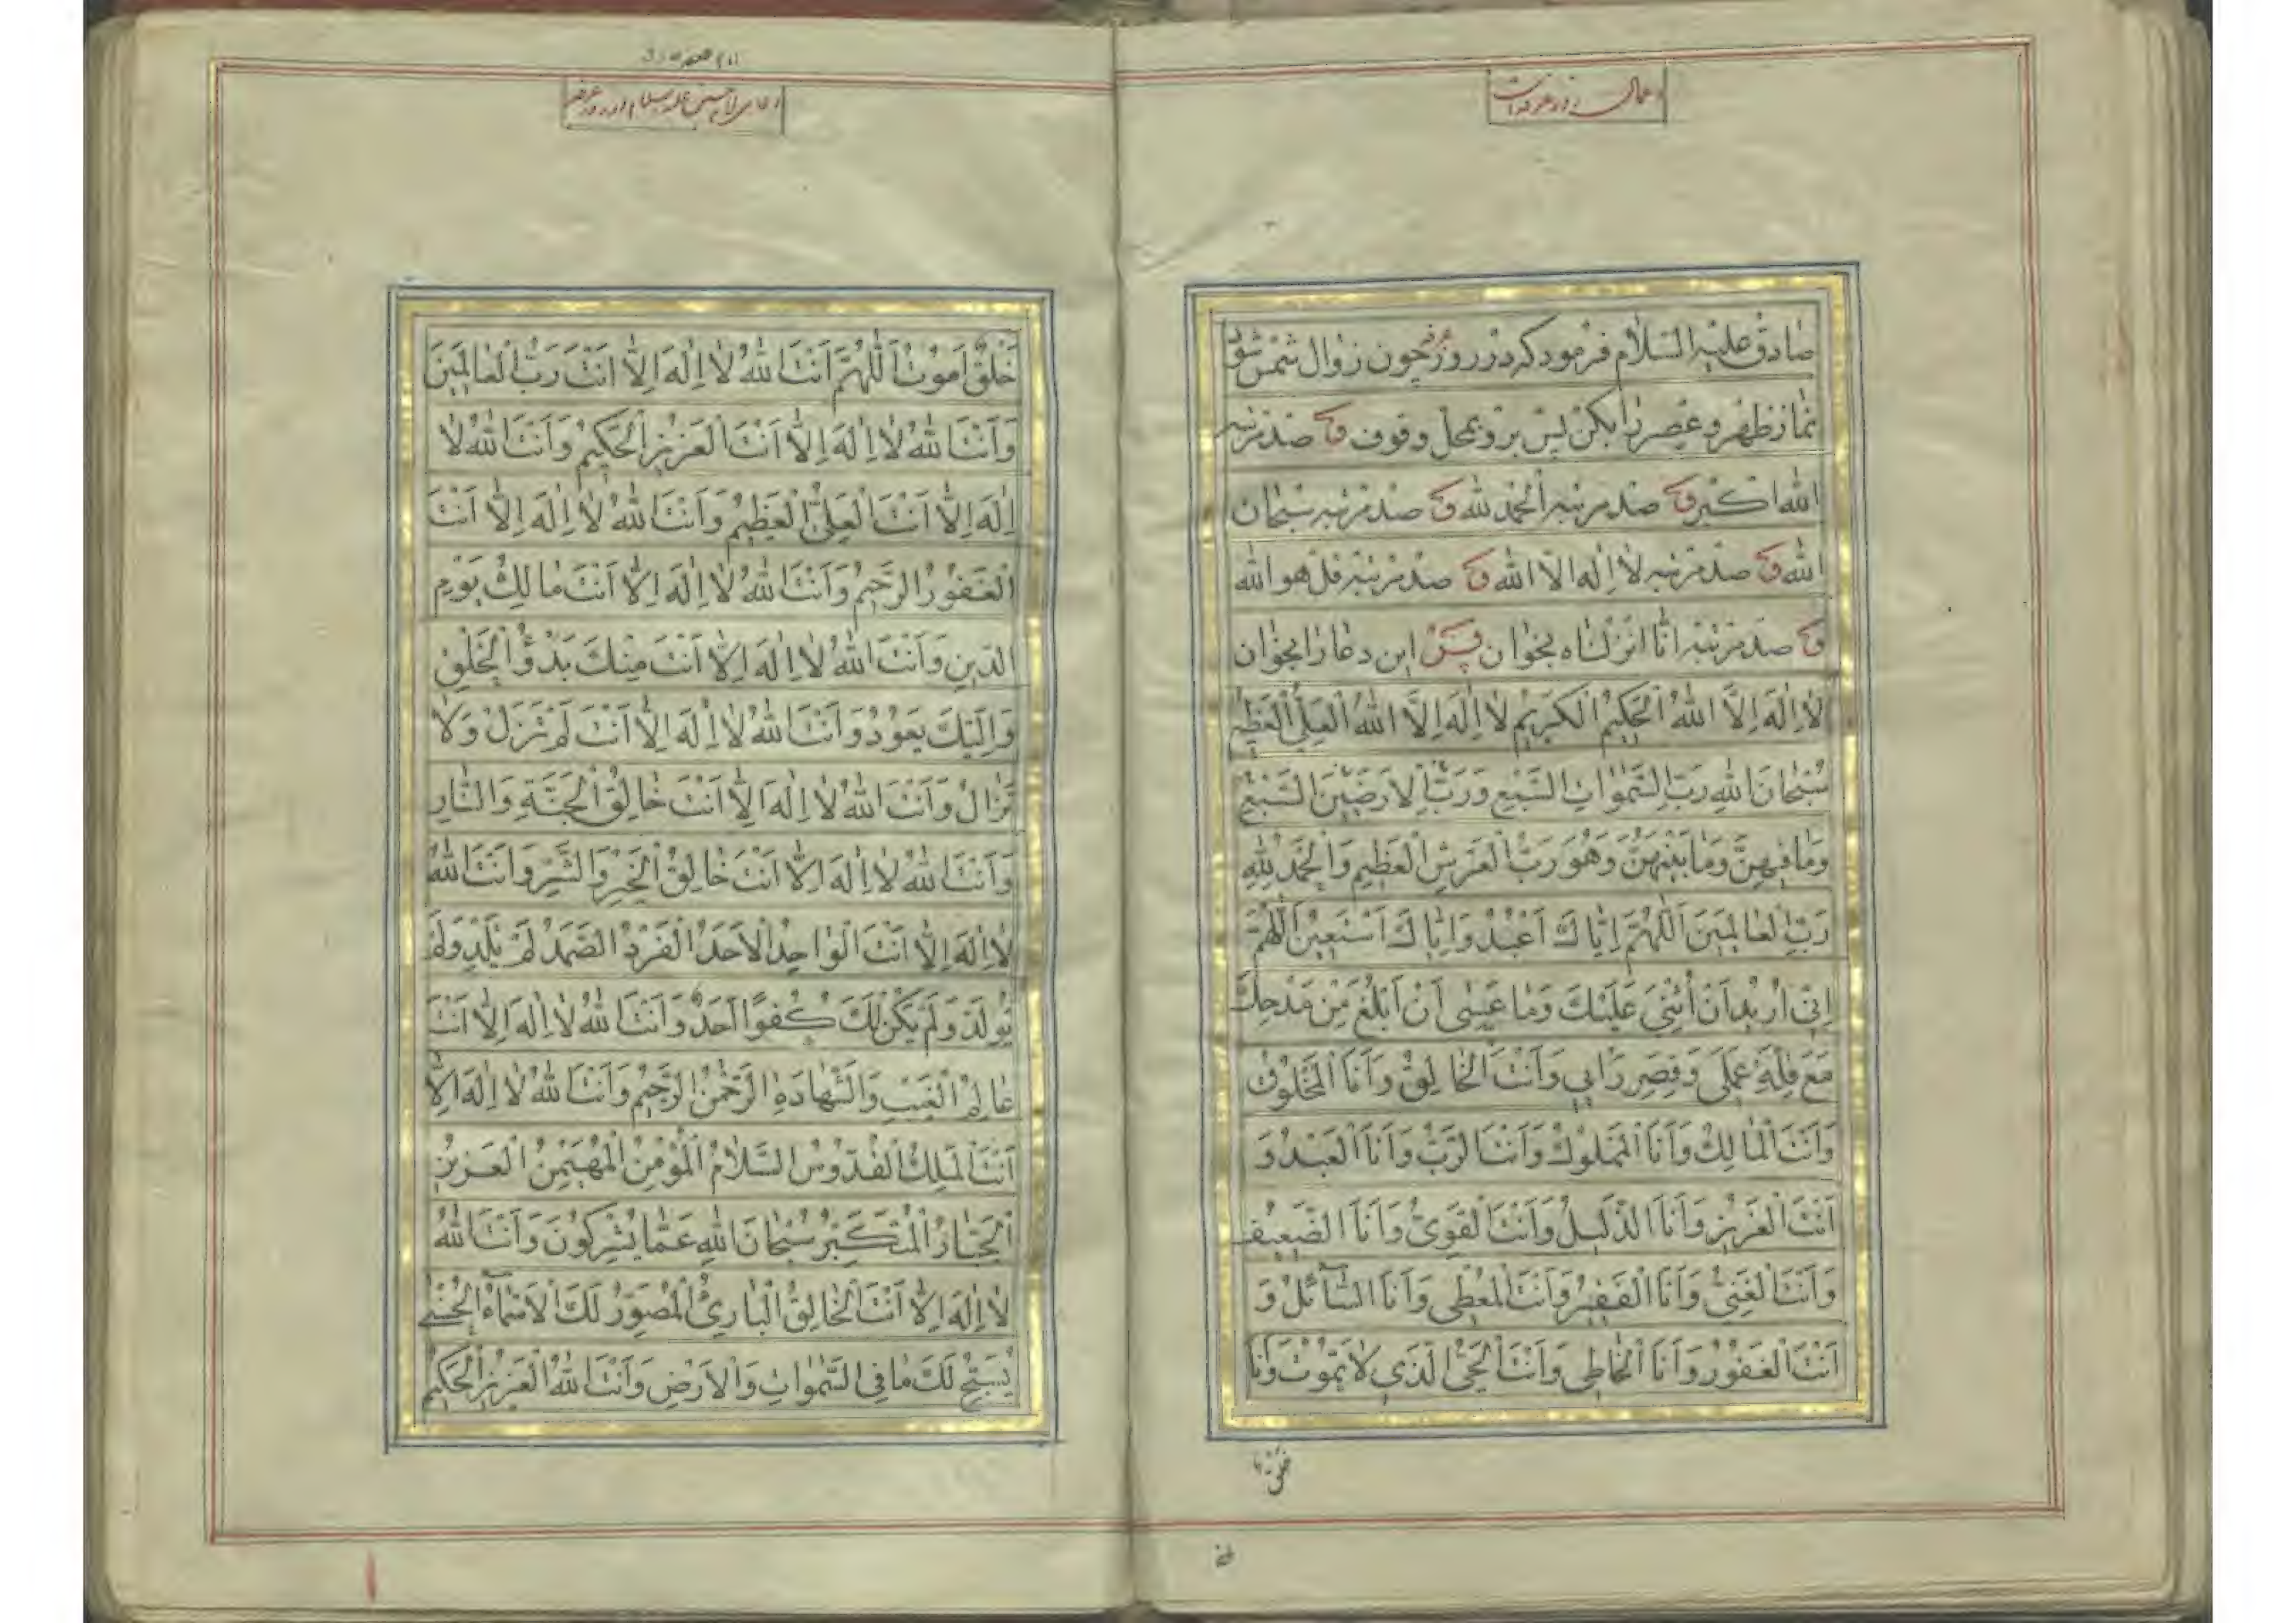 اعمال روز عرفه است
صادق علیه السلام فرمود که در روز عرفه چون زوال شمس شود
نماز ظهر و عصر را بکن پس برو بمحل وقوف و صد مرتبه
الله اکبر و صد مرتبه الحمد لله و صد مرتبه سبحان
الله و صد مرتبه لا اله الا الله و صد مرتبه قل هو الله
و صد مرتبه انا انزلناه بخوان پس این دعا را بخوان
لَا اِلٰهَ اِلَّا اللهُ الْحَكِيمُ الْكَرِيمُ لَا اِلٰهَ اِلَّا اللهُ الْعَلِيُّ الْعَظِيمُ
سُبْحَانَ اللهِ رَبِّ السَّمٰوَاتِ السَّبْعِ وَرَبِّ الْاَرَضِينَ السَّبْعِ
وَمَا فِيهِنَّ وَمَا بَيْنَهُنَّ وَهُوَ رَبُّ الْعَرْشِ الْعَظِيمِ وَالْحَمْدُ لِلّٰهِ
رَبِّ الْعَالَمِينَ اَللّٰهُمَّ اِيَّاكَ اَعْبُدُ وَاِيَّاكَ اَسْتَعِينُ اَللّٰهُمَّ
اِنِّي اُرِيدُ اَنْ اُثْنِيَ عَلَيْكَ وَمَا عَسٰى اَنْ اَبْلُغَ مِنْ مَدْحِكَ
مَعَ قِلَّةِ عَمَلِي وَقِصَرِ رَاْيِي وَاَنْتَ الْخَالِقُ وَاَنَا الْمَخْلُوقُ
وَاَنْتَ الْمَالِكُ وَاَنَا الْمَمْلُوكُ وَاَنْتَ الرَّبُّ وَاَنَا الْعَبْدُ وَ
اَنْتَ الْعَزِيزُ وَاَنَا الذَّلِيلُ وَاَنْتَ الْقَوِيُّ وَاَنَا الضَّعِيفُ
وَاَنْتَ الْغَنِيُّ وَاَنَا الْفَقِيرُ وَاَنْتَ الْمُعْطِي وَاَنَا السَّآئِلُ وَ
اَنْتَ الْغَفُورُ وَاَنَا الْخَاطِي وَاَنْتَ الْحَيُّ الَّذِي لَا يَمُوتُ وَاَنَا
خلق
خَلْقٌ اَمُوتُ اَللّٰهُمَّ اَنْتَ اللهُ لَا اِلٰهَ اِلَّا اَنْتَ رَبُّ الْعَالَمِينَ
وَاَنْتَ اللهُ لَا اِلٰهَ اِلَّا اَنْتَ الْعَزِيزُ الْحَكِيمُ وَاَنْتَ اللهُ لَا
اِلٰهَ اِلَّا اَنْتَ الْعَلِيُّ الْعَظِيمُ وَاَنْتَ اللهُ لَا اِلٰهَ اِلَّا اَنْتَ
الْغَفُورُ الرَّحِيمُ وَاَنْتَ اللهُ لَا اِلٰهَ اِلَّا اَنْتَ مَالِكُ يَوْمِ
الدِّينِ وَاَنْتَ اللهُ لَا اِلٰهَ اِلَّا اَنْتَ مِنْكَ بَدْؤُ الْخَلْقِ
وَاِلَيْكَ يَعُودُ وَاَنْتَ اللهُ لَا اِلٰهَ اِلَّا اَنْتَ لَمْ تَزَلْ وَلَا
تَزَالُ وَاَنْتَ اللهُ لَا اِلٰهَ اِلَّا اَنْتَ خَالِقُ الْجَنَّةِ وَالنَّارِ
وَاَنْتَ اللهُ لَا اِلٰهَ اِلَّا اَنْتَ خَالِقُ الْخَيْرِ وَالشَّرِّ وَاَنْتَ اللهُ
لَا اِلٰهَ اِلَّا اَنْتَ الْوَاحِدُ الْاَحَدُ الْفَرْدُ الصَّمَدُ لَمْ يَلِدْ وَلَمْ
يُولَدْ وَلَمْ يَكُنْ لَكَ كُفُوًا اَحَدٌ وَاَنْتَ اللهُ لَا اِلٰهَ اِلَّا اَنْتَ
عَالِمُ الْغَيْبِ وَالشَّهَادَةِ الرَّحْمٰنُ الرَّحِيمُ وَاَنْتَ اللهُ لَا اِلٰهَ اِلَّا
اَنْتَ الْمَلِكُ الْقُدُّوسُ السَّلَامُ الْمُؤْمِنُ الْمُهَيْمِنُ الْعَزِيزُ
الْجَبَّارُ الْمُتَكَبِّرُ سُبْحَانَ اللهِ عَمَّا يُشْرِكُونَ وَاَنْتَ اللهُ
لَا اِلٰهَ اِلَّا اَنْتَ الْخَالِقُ الْبَارِئُ الْمُصَوِّرُ لَكَ الْاَسْمَآءُ الْحُسْنٰى
يُسَبِّحُ لَكَ مَا فِي السَّمٰوَاتِ وَالْاَرْضِ وَاَنْتَ اللهُ الْعَزِيزُ الْحَكِيمُ